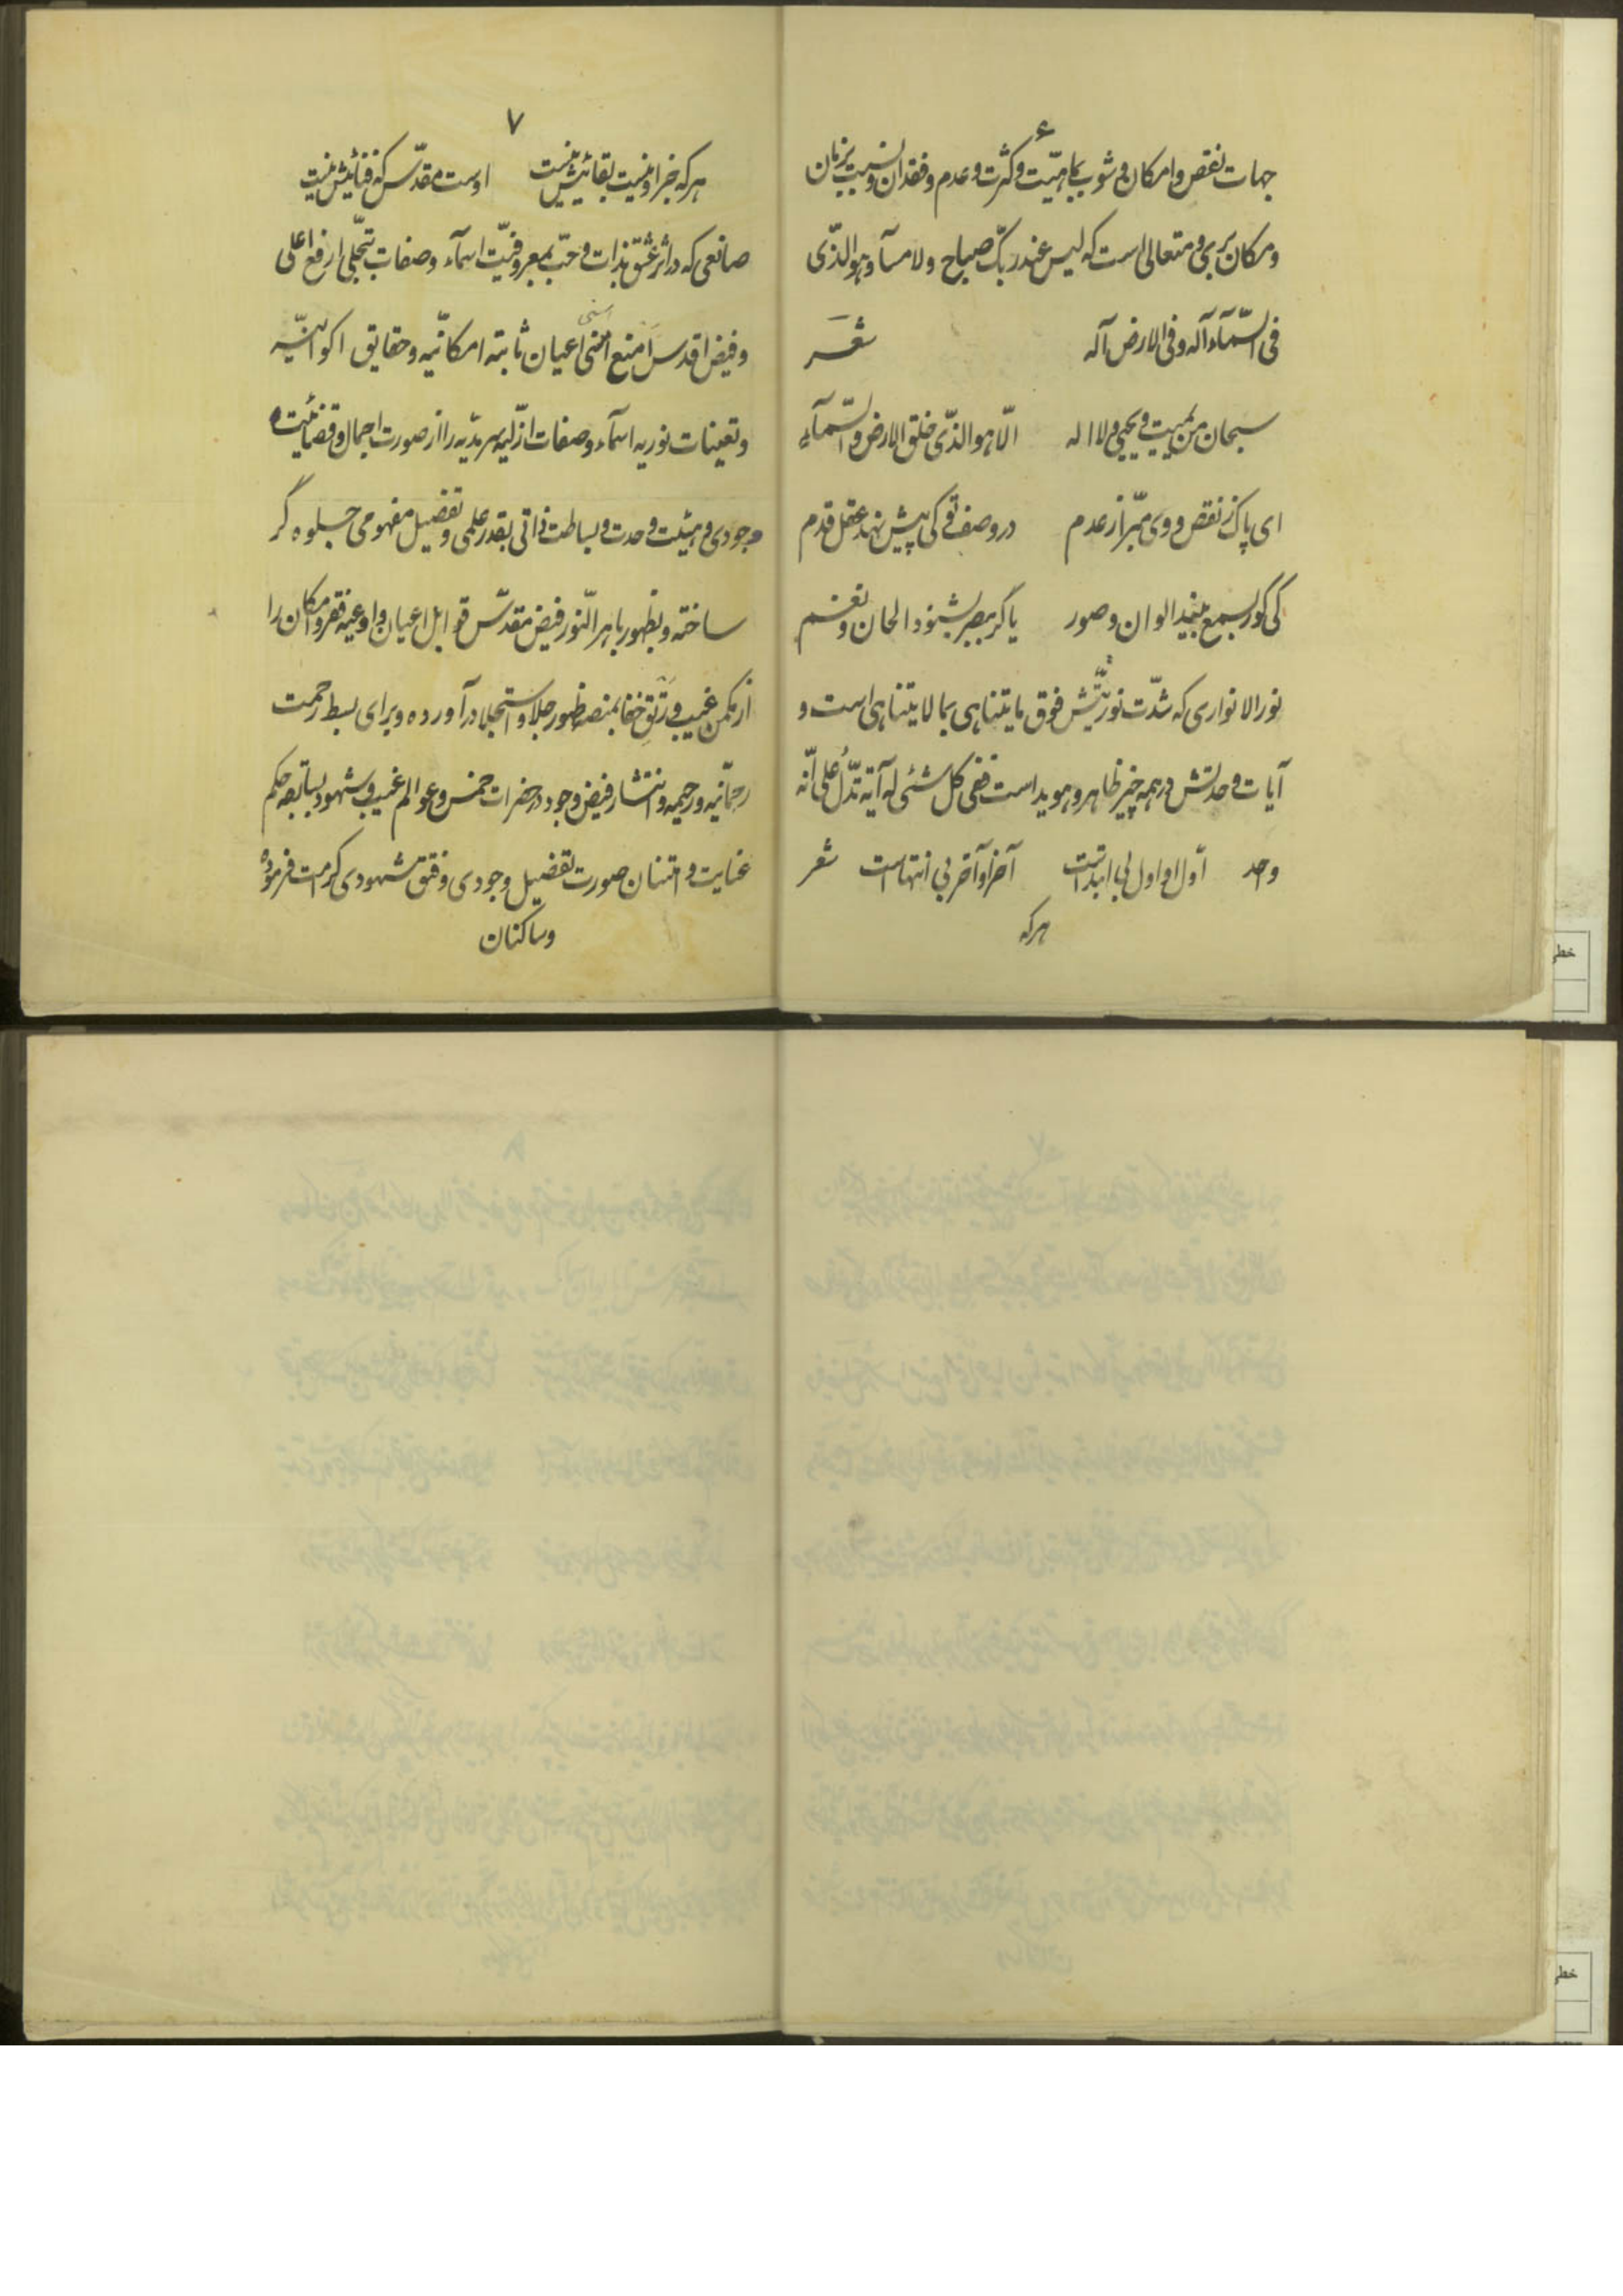 ۶
جهات نقص و امکان و شوب بماهیّت و کثرت و عدم و فقدان و نسبت بزمان
و مکان بری و متعالی است که لیس عند ربّک صباح ولا مسآء و هو الذّی
فی السّمآء آله و فی الارض آله شعر
سبحان من یمیت و یحیی و لا اله الّا هو الذّی خلق الارض و السّمآء
ای پاک ز نقص و وی مبّرا ز عدم در وصف تو کی پیش نهد عقل قدم
کی کور بسمع بیند الوان و صور یا کر ببصر بشنود الحان و نغم
نور الانواری که شدّت نوریّتش فوق ما یتناهی بما لا یتناهی است و
آیات وحدتش در همه چیز ظاهر و هویداست ففی کل شئی له آیة تدّلُ علی انّه
واحد اوّل او اول بی ابتداست آخر او آخر بی انتهاست شعر
هر که
۷
هر که جز او نیست بقائیش نیست اوست مقدّس که فنائیش نیست
صانعی که در اثر عشق بذات و حبّ بمعروفیّت اسمآء و صفات بتجّلی ارفع اعلی
و فیض اقدس امنع اسنی اعیان ثابته امکانیّه و حقایق اکوانیّه
و تعینات نوریه اسمآء و صفات ازّلیه سرمدّیه را از صورت اجمال و قضائیت
وجودی و هیئت وحدت و بساطت ذاتی بقدر علمی و تفصیل مفهومی جلوه گر
ساخته و بظهور باهر النّور فیض مقدّس قوابل اعیان و اوعیه فقر و امکان را
از مکمن غیب و رَتقِ خفا بمنصه ظهور جلا و استجلا در آورده و برای بسط رحمت
رحمّانیه و رحیمیه و انتشار فیض وجود در حضرات خمس و عوالم غیب و شهود بسابقه حکم
عنایت و امتنان صورت تفصیل وجودی و فتق شهودی کرامت فرموده
و ساکنان
خطی